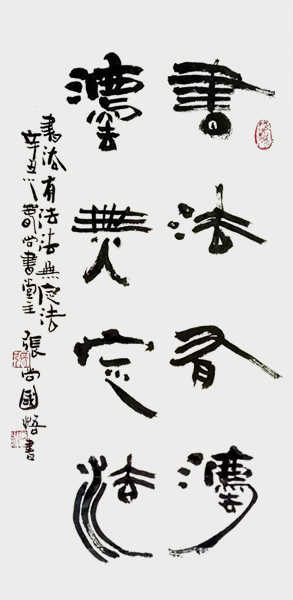 書法有灋
灋無定法
書法有法法無定法
辛丑 尚書堂主 張尚國 悟書